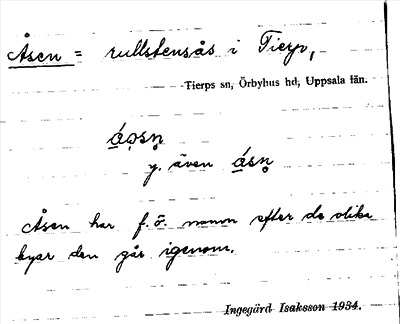 Åsen = rullstensås i Tierp,
Tierps sn, Örbyhus hd, Uppsala län.
á̲o̜sn̥
y. även á̲sn̥
Åsen har f. ö. namn efter de olika
byar den går igenom.
Ingegärd Isaksson 1934.